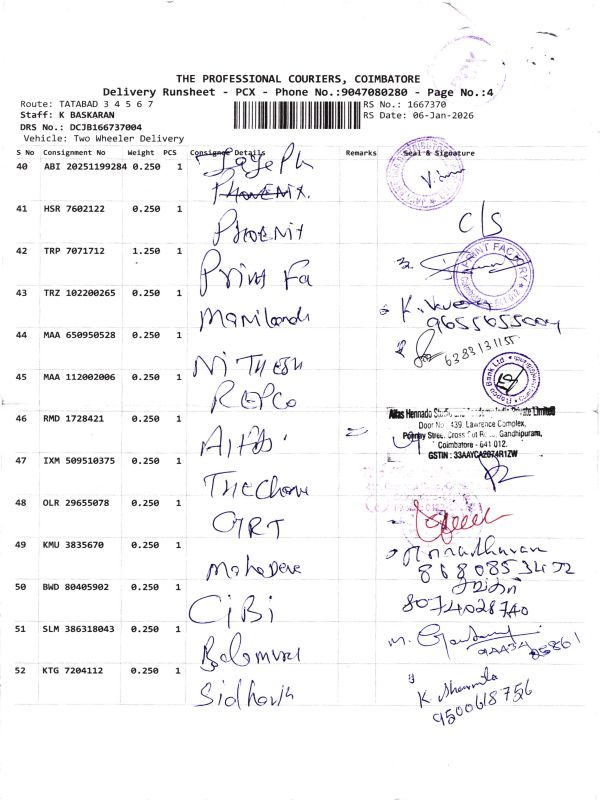 THE PROFESSIONAL COURIERS, COIMBATORE
Delivery Runsheet - PCX - Phone No.:9047080280 - Page No.:4
Route: TATABAD 3 4 5 6 7
RS No.: 1667370
Staff: K BASKARAN
RS Date: 06-Jan-2026
DRS No.: DCJB166737004
Vehicle: Two Wheeler Delivery
S No Consignment No Weight PCS Consignee Details Remarks Seal & Signature
40 ABI 20251199284 0.250 1
PHOENIX.
41 HSR 7602122 0.250 1 PHOENIX C/S
42 TRP 7071712 1.250 1 Print Fa
PRINT FACTORY
43 TRZ 102200265 0.250 1
9655655004
44 MAA 650950528 0.250 1 NITHESH 6383131155
45 MAA 112002006 0.250 1 REPCO
Repco Bank Ltd
46 RMD 1728421 0.250 1
Door No 439, Lawrence Complex,
Street, Cross Cut Road, Gandhipuram,
Coimbatore - 641 012.
GSTIN : 33AAYCA2074R1ZW
47 IXM 509510375 0.250 1
48 OLR 29655078 0.250 1 GRT
49 KMU 3835670 0.250 1
50 BWD 80405902 0.250 1 CiBi
8074028740
51 SLM 386318043 0.250 1
52 KTG 7204112 0.250 1
K Sharmila
9500618756